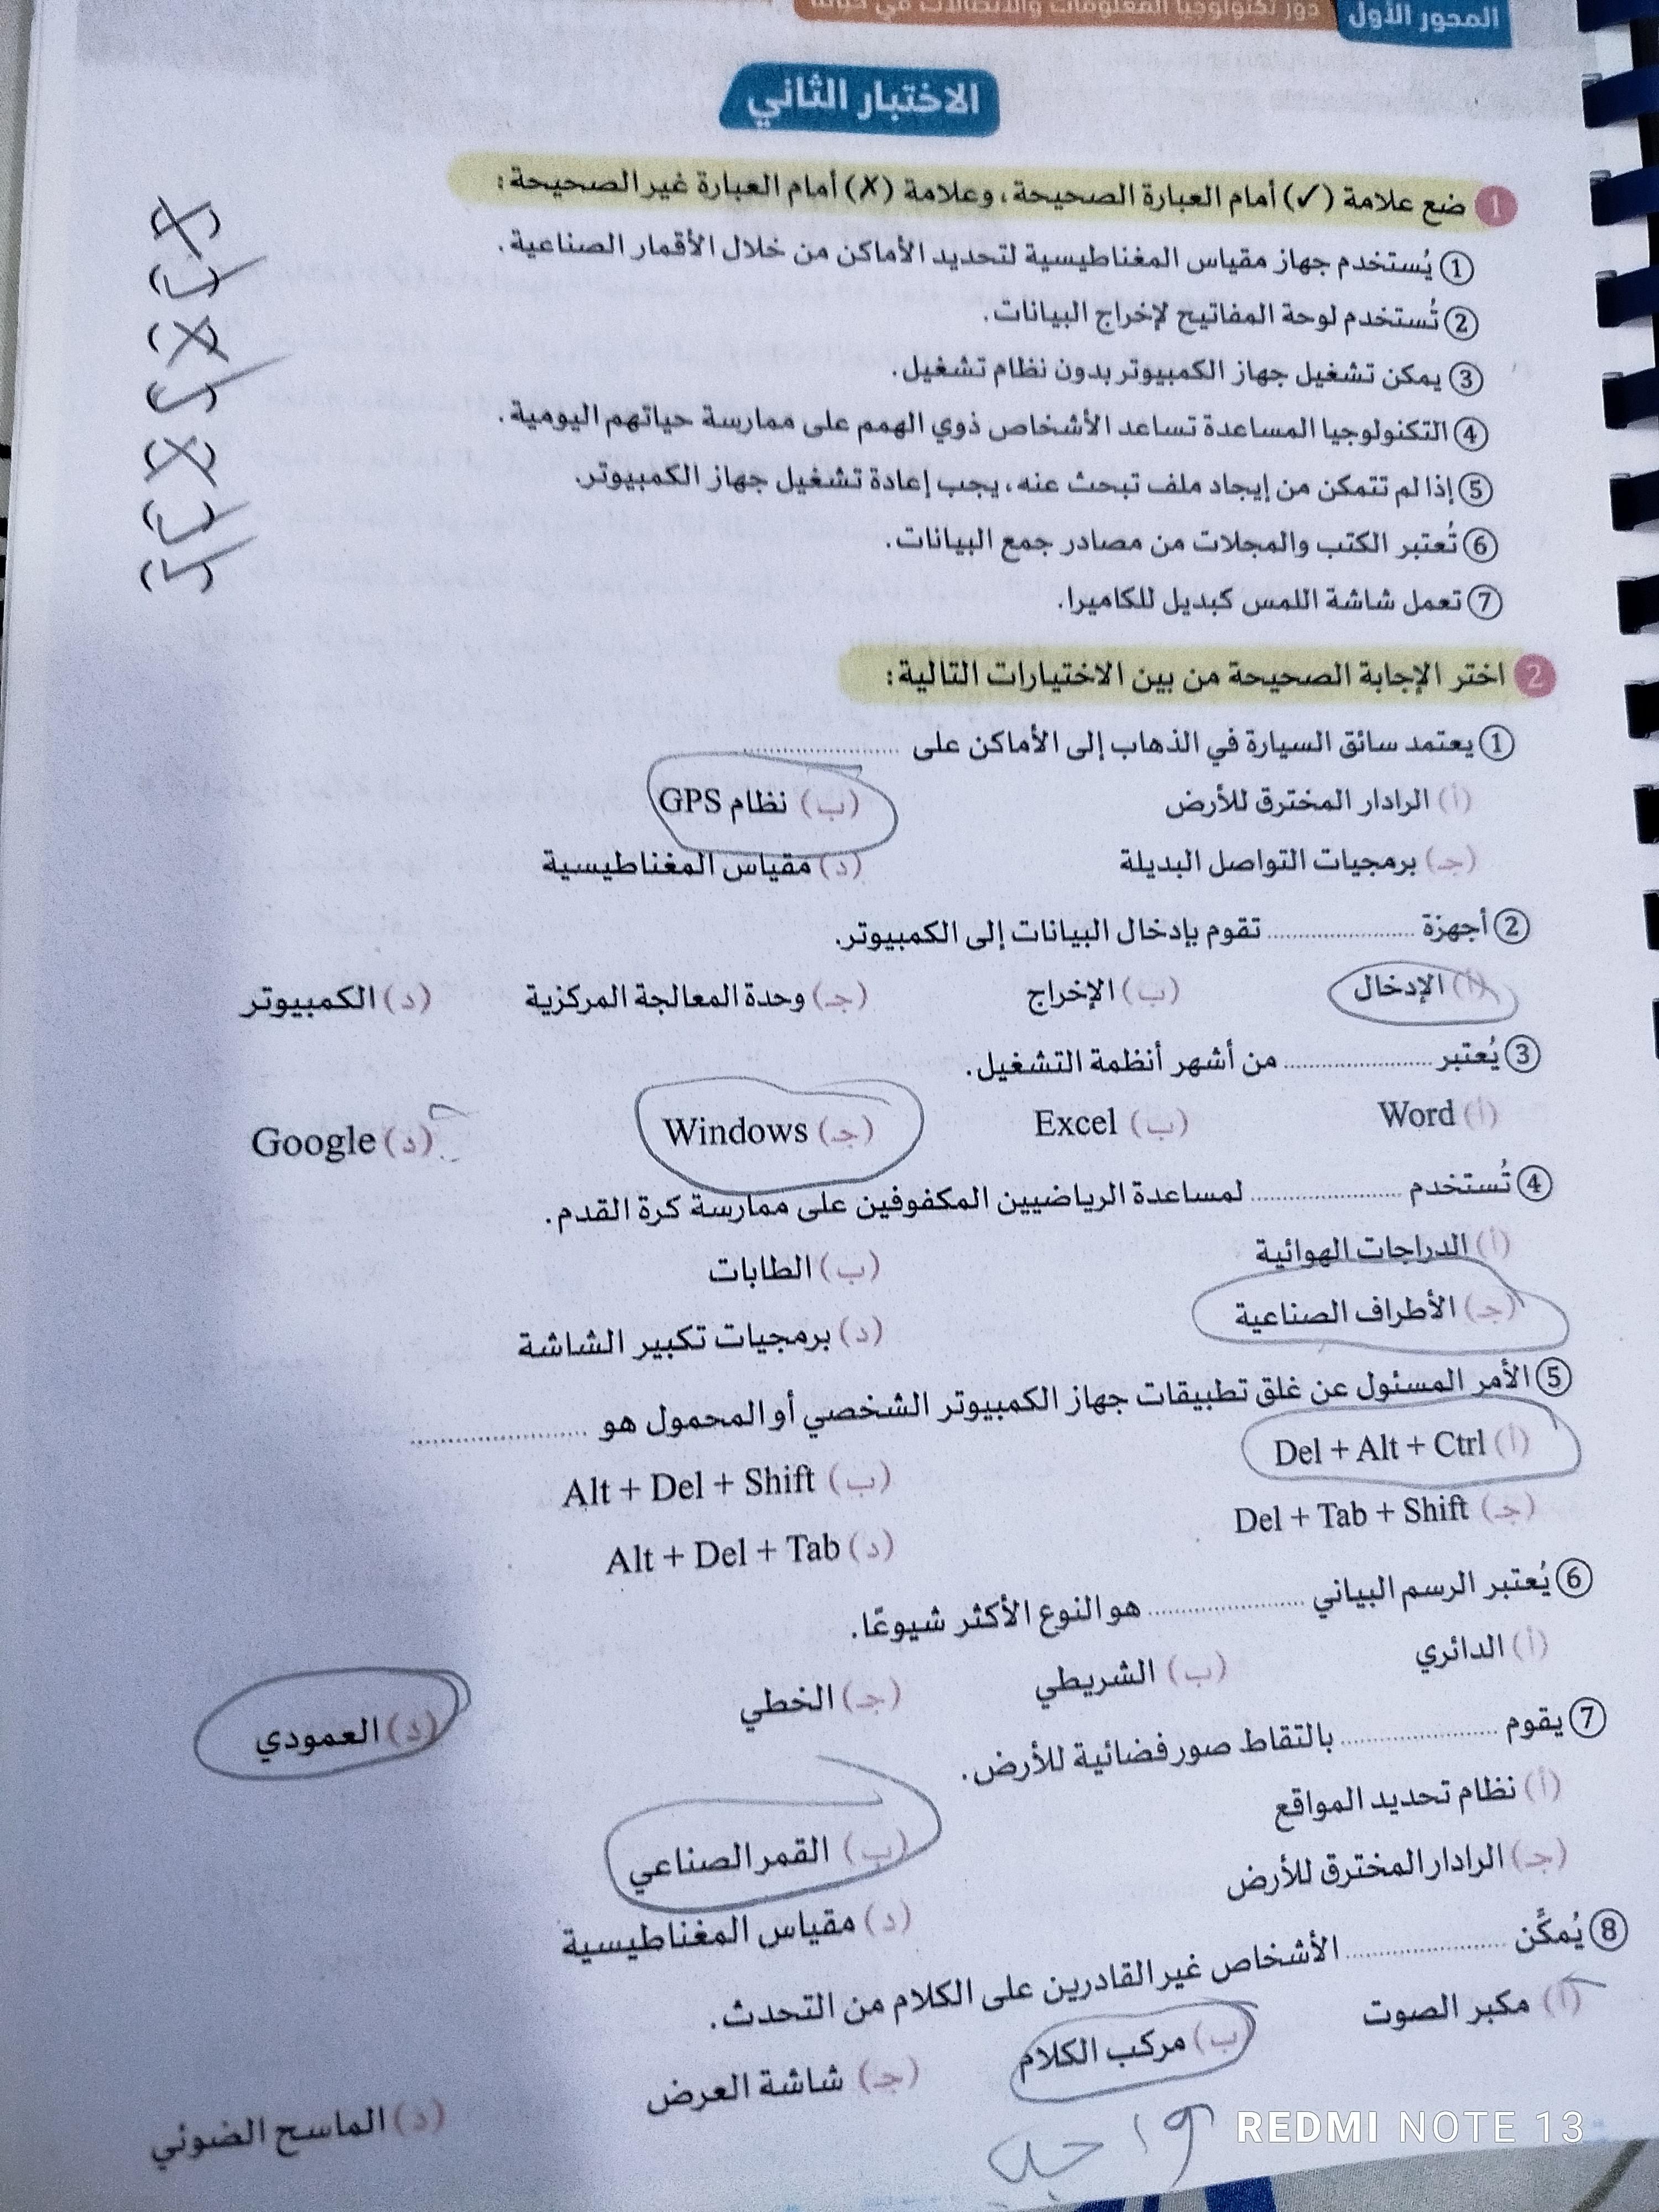 المحور الأول دور تكنولوجيا المعلومات والاتصالات في حياتنا
الاختبار الثاني
1 ضع علامة (✓) أمام العبارة الصحيحة، وعلامة (✗) أمام العبارة غير الصحيحة:
① يُستخدم جهاز مقياس المغناطيسية لتحديد الأماكن من خلال الأقمار الصناعية. (✗)
② تُستخدم لوحة المفاتيح لإخراج البيانات. (✓)
③ يمكن تشغيل جهاز الكمبيوتر بدون نظام تشغيل. (✗)
④ التكنولوجيا المساعدة تساعد الأشخاص ذوي الهمم على ممارسة حياتهم اليومية. (✓)
⑤ إذا لم تتمكن من إيجاد ملف تبحث عنه، يجب إعادة تشغيل جهاز الكمبيوتر. (✗)
⑥ تُعتبر الكتب والمجلات من مصادر جمع البيانات. (✓)
⑦ تعمل شاشة اللمس كبديل للكاميرا. (✓)
2 اختر الإجابة الصحيحة من بين الاختيارات التالية:
① يعتمد سائق السيارة في الذهاب إلى الأماكن على ....................
(أ) الرادار المخترق للأرض (ب) نظام GPS
(جـ) برمجيات التواصل البديلة (د) مقياس المغناطيسية
② أجهزة .................... تقوم بإدخال البيانات إلى الكمبيوتر.
(أ) الإدخال (ب) الإخراج (جـ) وحدة المعالجة المركزية (د) الكمبيوتر
③ يُعتبر .................... من أشهر أنظمة التشغيل.
(أ) Word (ب) Excel (جـ) Windows (د) Google
④ تُستخدم .................... لمساعدة الرياضيين المكفوفين على ممارسة كرة القدم.
(أ) الدراجات الهوائية (ب) الطابات
(جـ) الأطراف الصناعية (د) برمجيات تكبير الشاشة
⑤ الأمر المسئول عن غلق تطبيقات جهاز الكمبيوتر الشخصي أو المحمول هو ....................
(أ) Del + Alt + Ctrl (ب) Alt + Del + Shift
(جـ) Del + Tab + Shift (د) Alt + Del + Tab
⑥ يُعتبر الرسم البياني .................... هو النوع الأكثر شيوعًا.
(أ) الدائري (ب) الشريطي (جـ) الخطي (د) العمودي
⑦ يقوم .................... بالتقاط صور فضائية للأرض.
(أ) نظام تحديد المواقع (ب) القمر الصناعي
(جـ) الرادار المخترق للأرض (د) مقياس المغناطيسية
⑧ يُمكِّن .................... الأشخاص غير القادرين على الكلام من التحدث.
(أ) مكبر الصوت (ب) مركب الكلام (جـ) شاشة العرض (د) الماسح الضوئي
REDMI NOTE 13